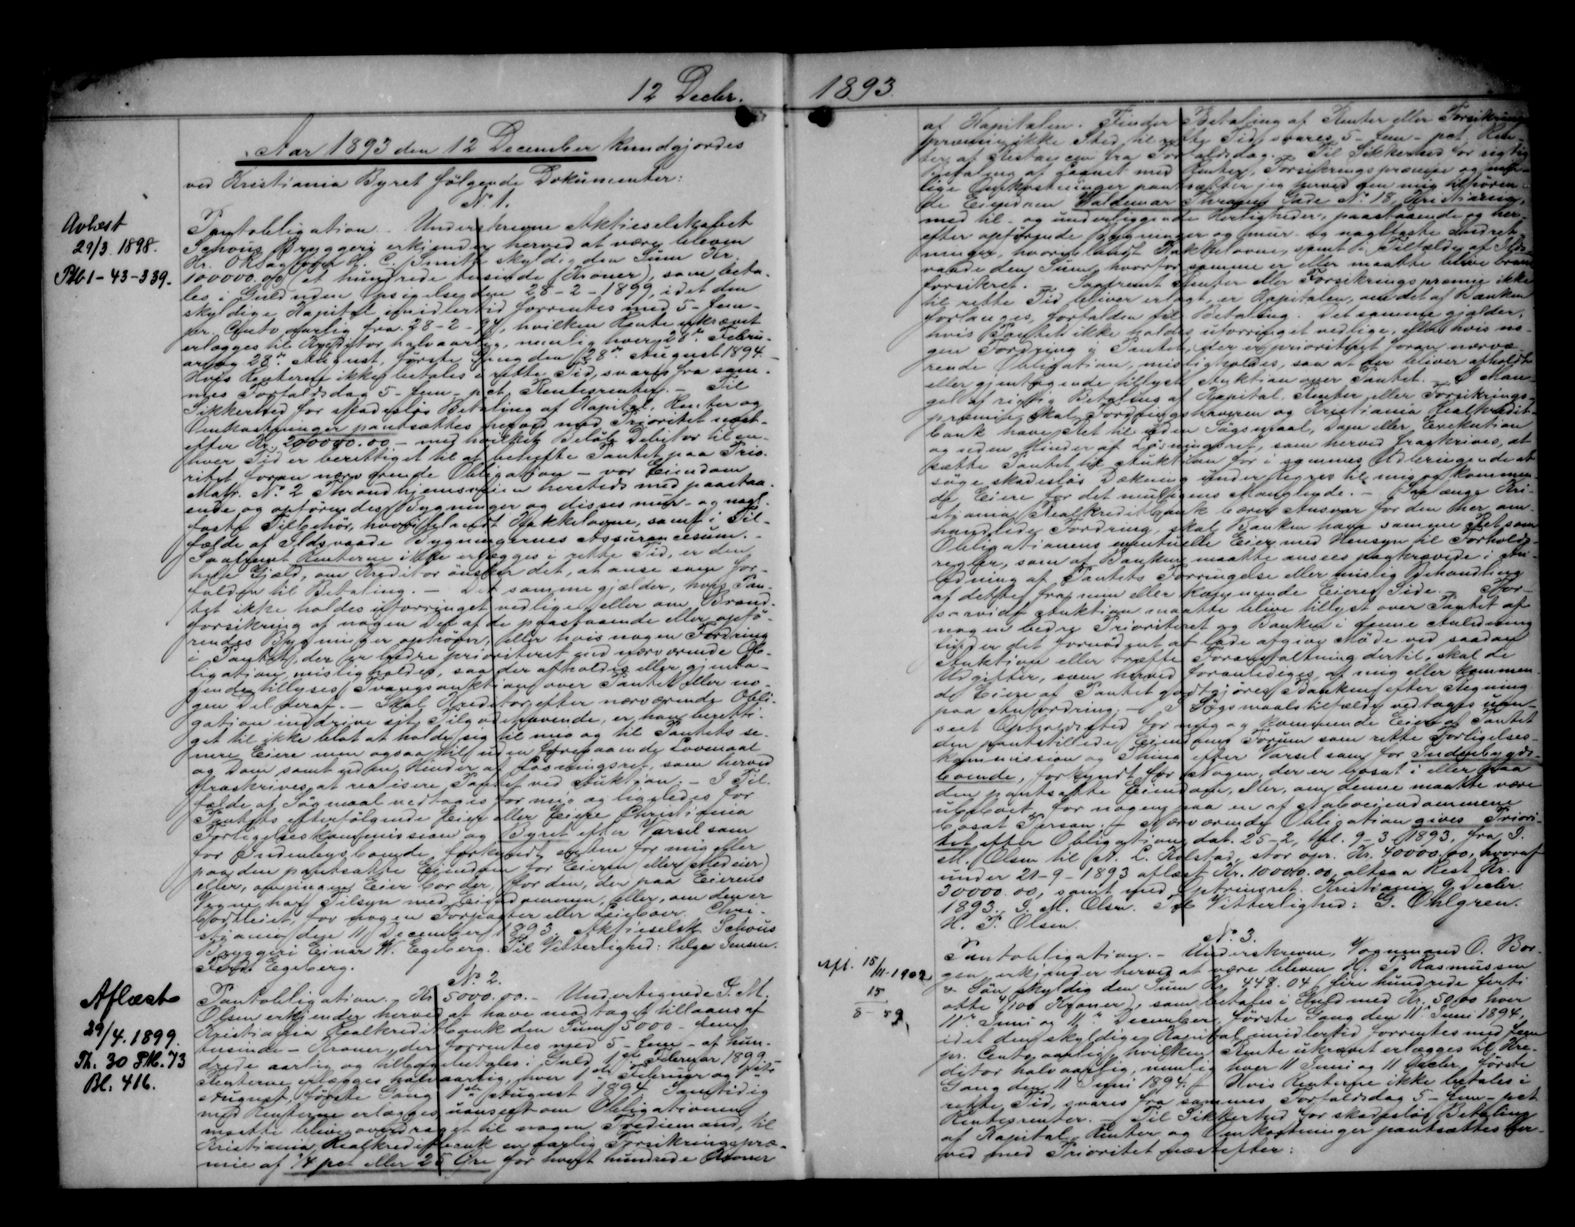 12 Decbr. 1893.
Aar 1893 den 12 December kundgjordes
ved Kristiania Byret følgende Dokumenter:
No 1.
Avlæst
29/3 1898.
Pb 1-43-339.
Pantobligation. Underskrevne Aktieselskabet
Schous Bryggeri erkjender herved at være bleven
Hr. O.R.Sagfører H. C. Smith skyldig den Sum Kr.
100000.00 et hundrede tusinde (Kroner), som beta-
les i Guld uden Opsigelse den 28-2-1899, idet den
skyldige Kapital imidlertid forrentes med 5-fem-
pr. Cento aarlig fra 28-2-94, hvilken Rente ukrævet
erlægges til Kreditor halvaarlig, nemlig hver 28de Febru-
ar og 28de August, første Gang den 28de August 1894.
Hvis Renterne ikke betales i rette Tid, svares fra sam-
mes Forfaldsdag 5-fem-pct. Rentesrenter. - Til
Sikkerhed for skadesløs Betaling af Kapital, Renter og
Omkostninger pantsættes herved med Prioritet næst-
efter Kr. 200000.00 - med hvilket Beløb Debitor til en-
hver Tid er berettiget til at behefte Pantet paa Prio-
ritet foran nærværende Obligation - vor Eiendom
Matr. No 2 Throndhjemsveien heretids med paastaa-
ende og opførendes Bygninger og disses mur- og nagl-
faste Tilgehør, hvoriblandt Kakkelovne, samt i Til-
fælde af Ildsvaade Bygningernes Assurancesum. -
Saafremt Renterne ikke erlægges i rette Tid, er den
hele Gjæld, om Kreditor ønsker det, at anse som for-
falden til Betaling. - Det samme gjælder, hvis Pan-
tet ikke holdes uforringet vedlige, eller om Brand-
forsikring af nogen Del af de paastaaende eller opfø-
rendes Bygninger ophører, eller hvis nogen Fordring
i Pantet, der er bedre prioriteret end nærværende Ob-
ligation, misligholdes, saa der afholdes eller gjenta-
gende tillyses Tvangsauktion over Pantet eller no-
gen Del deraf. - Skal Kreditor efter nærværende Obli-
gation inddrive sit Tilgodehavende, er han beretti-
get til ikke blot at holde sig til mig og til Pantets se-
nere Eiere men ogsaa til uden foregaaende Lovmaal
og Dom, samt uden Hinder af Løsningsret, som herved
fraskrives, at realisere Pantet ved Auktion. - I Til-
fælde af Søgmaal vedtages for mig og ligeledes for
Pantets efterfølgende Eier eller Eiere Christiania
Forligelseskommission og Byret efter Varsel som
for Indenbysboende, forkyndt enten for mig eller
paa den pantsatte Eiendom for Eieren eller Medeier
eller, om ingen Eier bor der, for den, der paa Eierens
Vegne har Tilsyn med Eiendommen, eller, om den er
bortleiet, for nogen Forpagter eller Leieboer. Chri-
stiania den 11 December 1893. Aktieselsk Schous
Bryggeri Einar W. Egeberg. Til Vitterlighed: Helge Jensen.
Egeberg.
No 2.
Aflæst
29/4. 1899.
Th. 30 Pk. 73
Bl. 416.
Pantobligation. Kr. 5000.00. - Undertegnede J. M.
Olsen erkjender herved at have modtaget tillaans af
Kristiania Realkreditbank den Sum 5000 - fem
tusinde - Kroner, der forrentes med 5 - fem - af hun-
drede aarlig og tilbagebetales i Guld 1ste Februar 1899.
Renterne erlægges halvaarlig, hver 1ste Februar og 1ste
August, første Gang 1ste August 1894. Samtidig
med Renterne erlægges uanseet om Obligationen
maatte blive overdraget til nogen Trediemand, til
Kristiania Realkreditbank en aarlig Forsikringspræ-
mie af 1/4 pct eller 25 Øre for hvert hundrede Kroner
af Kapitalen. Finder Betaling af Renter eller Forsikrings-
præmie ikke Sted til rette Tid, svares 5-fem-pct. Ren-
ter af Restancen fra Forfaldsdag. Til Sikkerhed for rigtig
Betaling af Laanet med Renter, Forsikringspræmie og mu-
lige Omkostninger pantsætter jeg herved den mig tilhøren-
de Eiendom Waldemar Thranes Gade No 18, Kristiania,
med til- og underliggende Herligheder, paastaaende og her-
efter opførende Bygninger og mur- og naglfaste Indret-
ninger, hvoriblandt Kakkelovne, samt i Tilfælde af Ilds-
vaade den Sum, hvorfor samme er eller maatte blive brand-
forsikret. - Saafremt Renter eller Forsikringspræmie ikke
til rette Tid bliver erlagt, er Kapitalen, om det af Banken
forlanges, forfalden til Betaling. Det samme gjælder,
hvis Pantet ikke holdes uforringet vedlige, eller hvis no-
gen Fordring i Pantet, der er prioriteret foran nærvæ-
rende Obligation, misligholdes, saa at der bliver afholdt
eller gjentagende tillyst Auktion over Pantet. - I Man-
gel af rigtig Betaling af Kapital, Renter eller Forsikrings-
præmie skal Fordringshaveren og Kristiania Realkredit-
bank have Ret til uden Søgsmaal, Dom eller Exekution
og uden Hinder af Løsningsret, som herved fraskrives, at
sætte Pantet til Auktion for i sammes Udbringende at
søge skadesløs Dækning under Regres til mig og kommen-
de Eiere for det muligens Manglende. - Saa længe Kri-
stiania Realkreditbank bærer Ansvar for den her om-
handlede Fordring, skal Banken have samme Ret som
Obligationens eventuelle Eier med Hensyn til Forholds-
regler, som af Banken maatte ansees paakrævede i An-
ledning af Pantets Forringelse eller mislig Behandling
af dette fra min eller kommende Eieres Side. - For-
saavidt Auktion maatte blive tillyst over Pantet af
nogen bedre Prioriteret og Banken i denne Anledning
finder det fornødent at lade afgive Møde ved saadan
Auktion eller træffe Foranstaltning dertil, skal de
Udgifter, som herved foranlediges, af mig eller kommen-
de Eiere af Pantet godtgjøres Banken efter Regning
paa Anfordring. - I Søgsmaalstilfælde vedtages uan-
seet Opholdssted for mig og kommende Eiere af Pantet
den pantstillede Eiendoms Forum som rette Forligelses-
kommission og Thing efter Varsel som for Indenbygds-
boende, forkyndt for Nogen, der er bosat i eller paa
den pantsatte Eiendom, eller, om denne maatte være
ubeboet, for nogen paa en af Naboeiendommene
bosat Person. - Nærværende Obligation gives Priori-
tet efter Obligation, dat. 25-2, tl. 9-3 1893, fra J.
M. Olsen til A. L. Kolstad, stor opr. Kr. 40000.00, hvoraf
under 21-9-1893 aflæst Kr. 10000.00, altsaa Rest Kr.
30000.00, samt med Optrinsret. Kristiania 9 Decbr.
1893. J. M. Olsen. Til Vitterlighed: G. Ohlgren.
H. T. Olsen.
No 3.
Afl. 15/11-1902
15
8-59
Pantobligation. - Underskrevne, Vognmand O. Bor-
gen, erkjender herved at være bleven H. P. Rasmussen
& Søn skyldig den Sum Kr. 448.04, fire hundrede forti
otte 4/100 Kroner), som betales i Guld med Kr. 50.00 hver
11te Juni og 11te December, første Gang den 11te Juni 1894,
idet den skyldige Kapital imidlertid forrentes med fem
pr. Cento aarlig, hvilken Rente ukrævet erlægges til Kre-
ditor halvaarlig, nemlig hver 11 Juni og 11 Decbr., første
Gang den 11 Juni 1894. - Hvis Renterne ikke betales i
rette Tid, svares fra sammes Forfaldsdag 5-fem-pct
Rentesrenter. - Til Sikkerhed for skadesløs Betaling
af Kapital, Renter og Omkostninger pantsættes her-
ved med Prioritet næstefter: